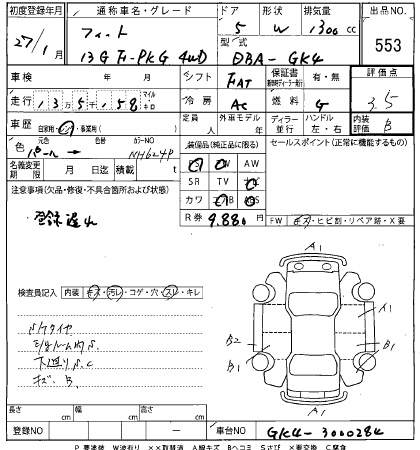 初度登録年月 通称車名・グレード ドア 形状 排気量 出品NO
27/1 フィット 5 W 1300 cc
13G F-PKG 4WD 型式 DBA-GK4 553
車検 シフト FAT 保証書 有・無 評価点
走行 135,158 マイル キロ 冷房 AC 燃料 G 3.5
車歴 自家用・レンタ・事業用( ) 定員 人 外車モデル 年 ディーラー 並行 ハンドル 左・右 内装評価 B
色 元色 パール → カラーNO NH624P 装備品(純正品に限る) セールスポイント(正常に機能するもの)
名義変更期限 月 日迄 積載 t PS SW AW
SR TV ナビ
注意事項(欠品・修復・不具合箇所および状態) カワ AB ABS
登録遅れ R券 9,880 円 FW キズ・ヒビ割・リペア跡・X要
検査員記入 内装 キズ・汚レ・コゲ・穴・スレ・キレ
A1
A1
B2 B1
B1
キズ B.
A1
長さ cm 幅 cm 高さ cm
登録NO ー 車台NO GK4-3000284
P 要塗装 W波有り ××取替済 A線キズ Bヘコミ Sさび X要交換 C腐食